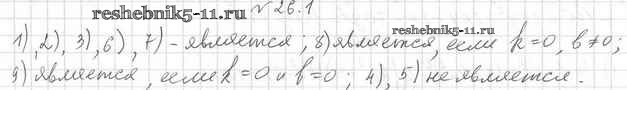 reshebnik5-11.ru № 26.1
reshebnik5-11.ru
1), 2), 3), 6), 7) - является; 8) является, если k=0, b≠0;
9) является, если k=0 и b=0; 4), 5) не является.